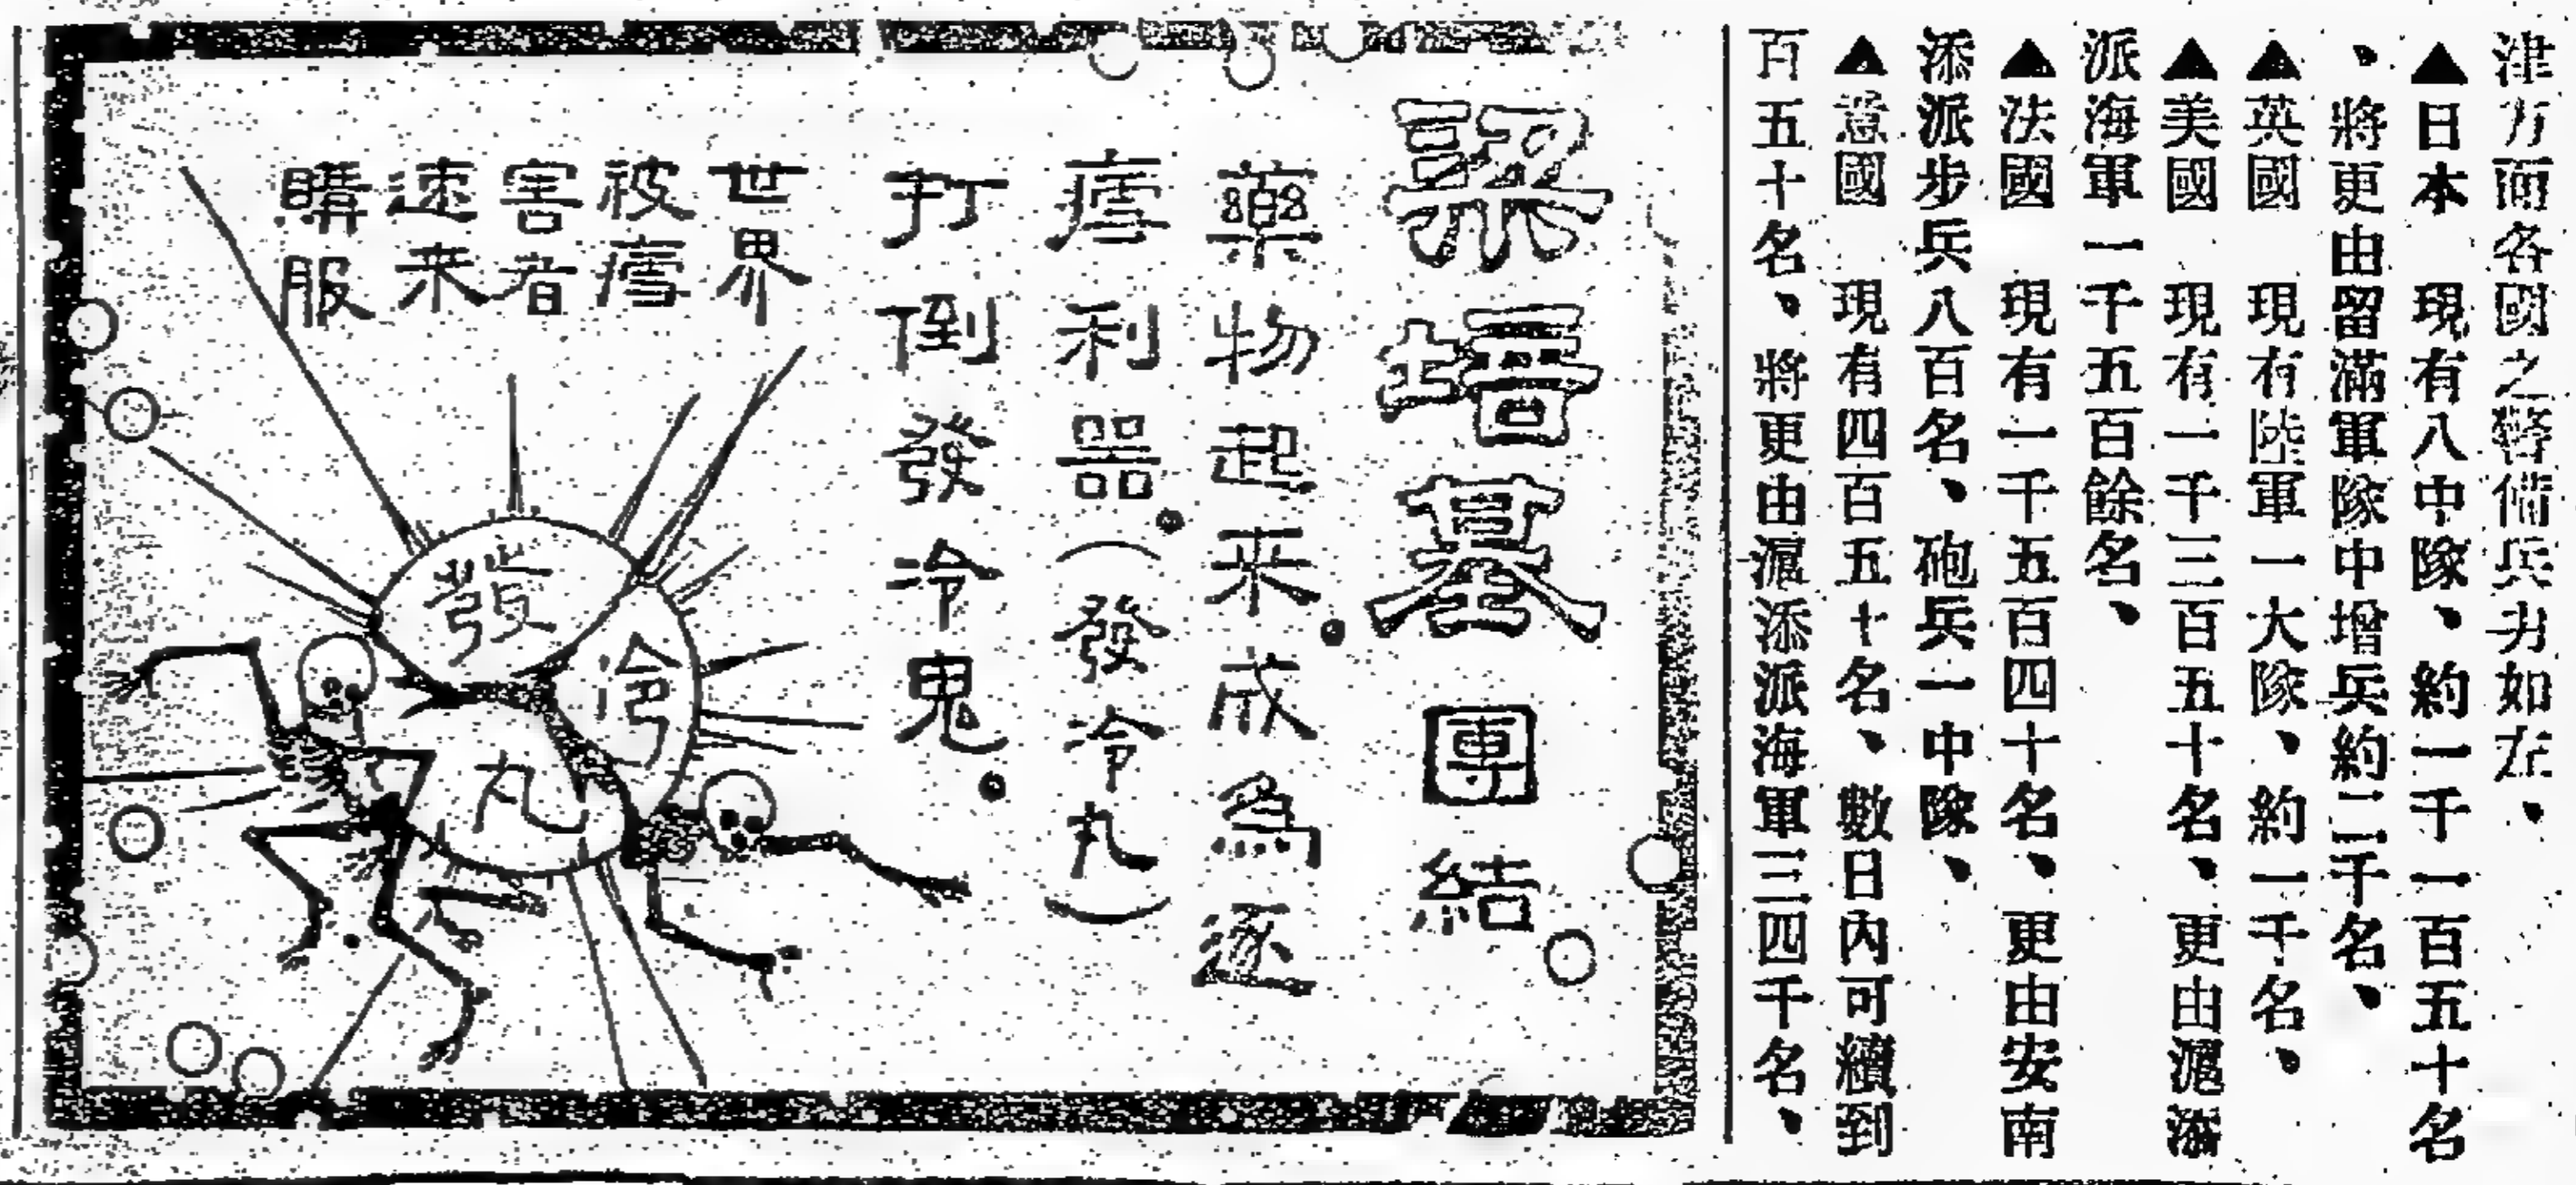 津方面各國之警備兵力如左、
▲日本　現有八中隊、約一千一百五十名
、將更由留滿軍隊中增兵約二千名、
▲英國　現有陸軍一大隊、約一千名、
▲美國　現有一千三百五十名、更由滬添
派海軍一千五百餘名、
▲法國　現有一千五百四十名、更由安南
添派步兵八百名、砲兵一中隊、
▲意國　現有四百五十名、數日內可續到
百五十名、將更由滬添派海軍三四千名、
梁培基團結
藥物起来成為逐
瘧利器。（發冷丸）
打倒發冷鬼。
世界
被瘧
害者
速来
購服
發
冷
丸